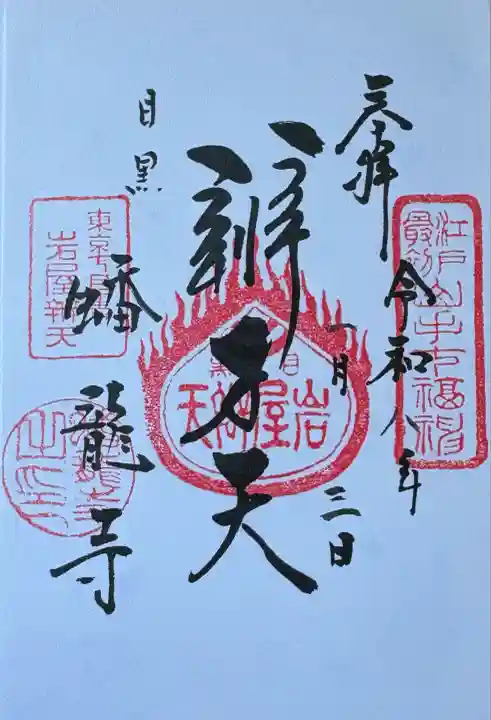 三拝
令和八年
一月三日
江戸山手七福神
最初
辨才天
目黒
岩屋辨天
目黒
蟠龍寺
東京目黒
岩屋辨天
蟠龍寺之印